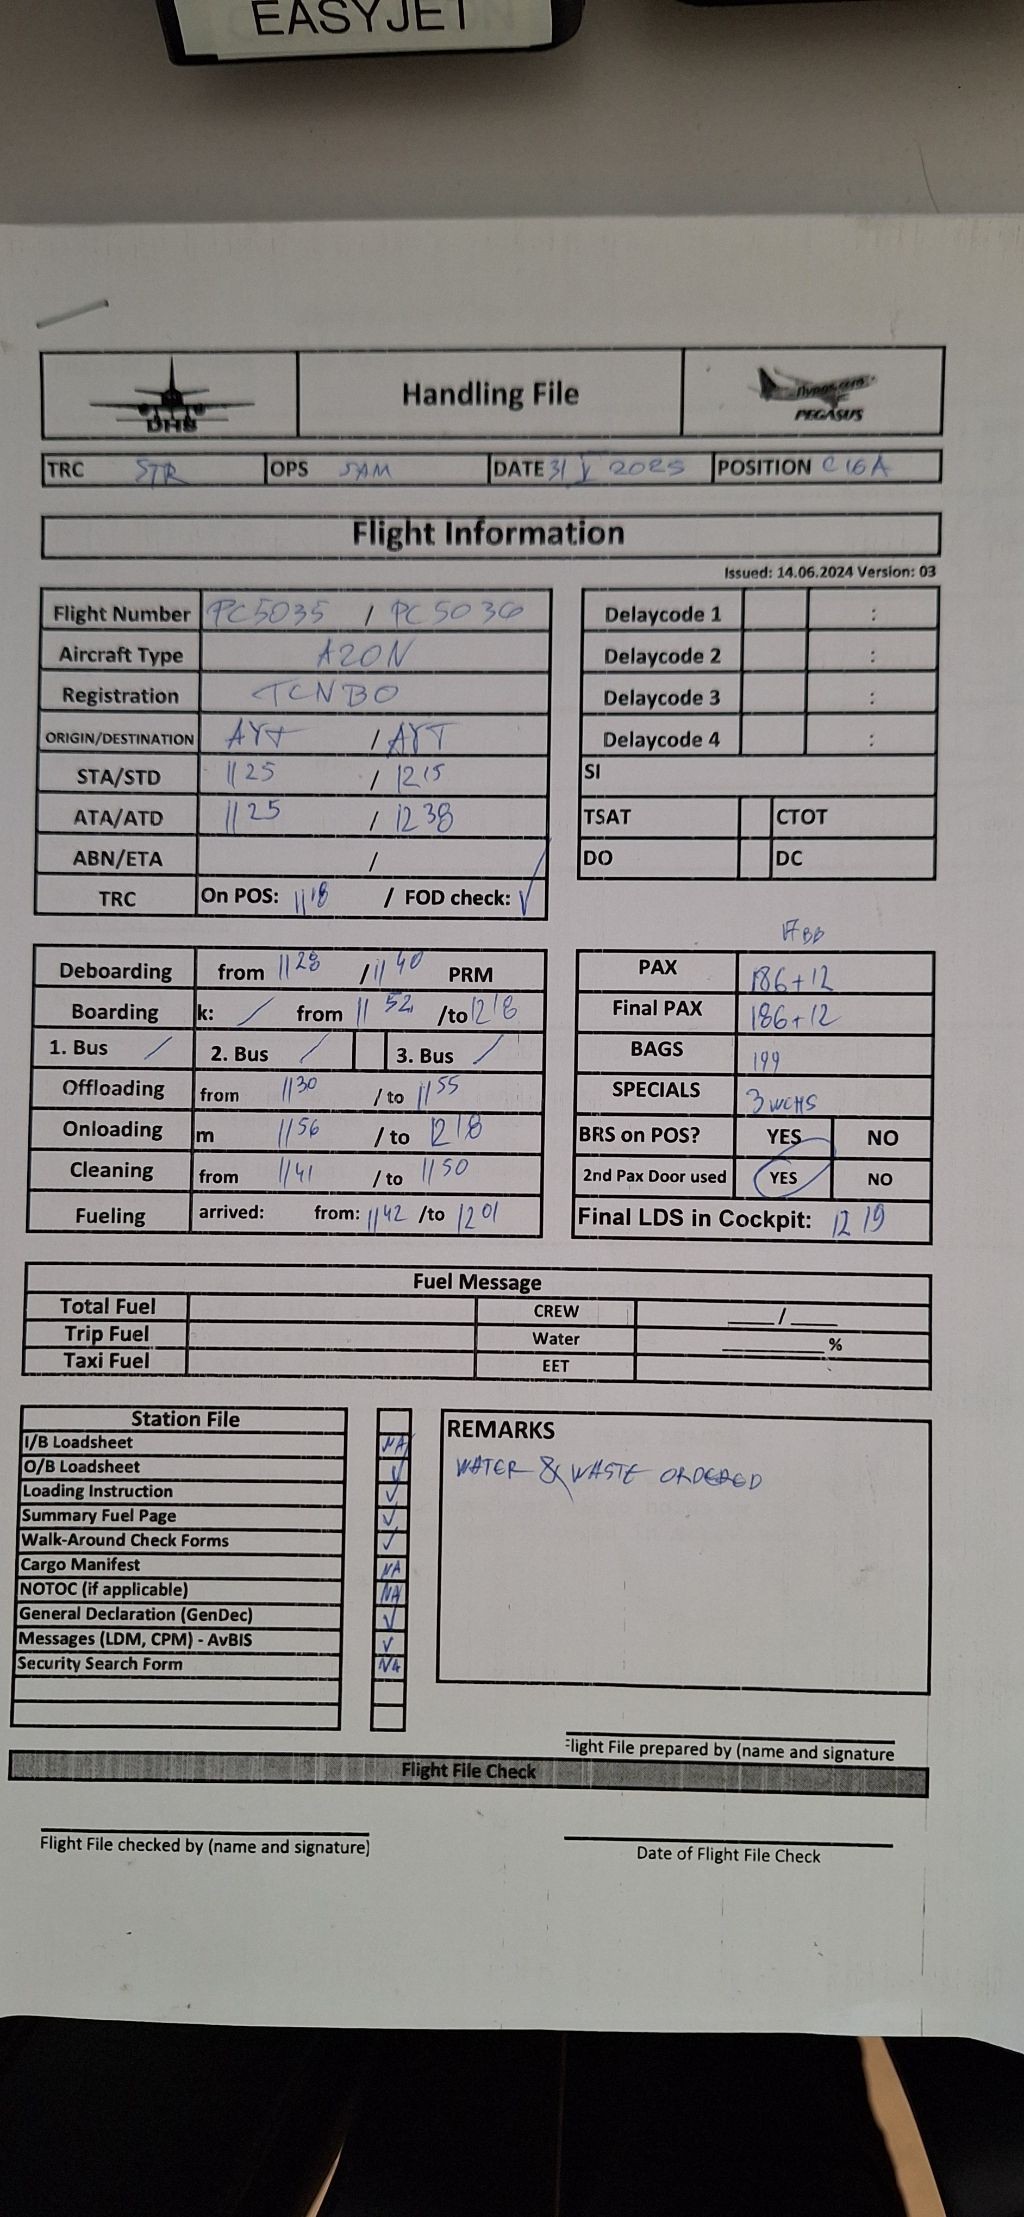 EASYJET
DHS
Handling File
flypgs.com
PEGASUS
TRC STR OPS SAM DATE 31 V 2025 POSITION C16A
Flight Information
Issued: 14.06.2024 Version: 03
Flight Number PC5035 / PC5036
Aircraft Type A20N
Registration TCNBO
ORIGIN/DESTINATION AYT / AYT
STA/STD 1125 / 1215
ATA/ATD 1125 / 1238
ABN/ETA /
TRC On POS: 1118 / FOD check: ✓
Delaycode 1 :
Delaycode 2 :
Delaycode 3 :
Delaycode 4 :
SI
TSAT CTOT
DO DC
Deboarding from 1128 / 1140 PRM
Boarding k: / from 1152 /to 1218
1. Bus / 2. Bus / 3. Bus /
Offloading from 1130 / to 1155
Onloading m 1156 / to 1218
Cleaning from 1141 / to 1150
Fueling arrived: from: 1142 /to 1201
17BB
PAX 186+12
Final PAX 186+12
BAGS 199
SPECIALS 3 WCHS
BRS on POS? YES NO
2nd Pax Door used YES NO
Final LDS in Cockpit: 1219
Fuel Message
Total Fuel CREW ___/___
Trip Fuel Water ______%
Taxi Fuel EET
Station File
I/B Loadsheet NA
O/B Loadsheet ✓
Loading Instruction ✓
Summary Fuel Page ✓
Walk-Around Check Forms ✓
Cargo Manifest NA
NOTOC (if applicable) NA
General Declaration (GenDec) ✓
Messages (LDM, CPM) - AvBIS ✓
Security Search Form NA
REMARKS
WATER & WASTE ORDERED
Flight File prepared by (name and signature
Flight File Check
Flight File checked by (name and signature)
Date of Flight File Check